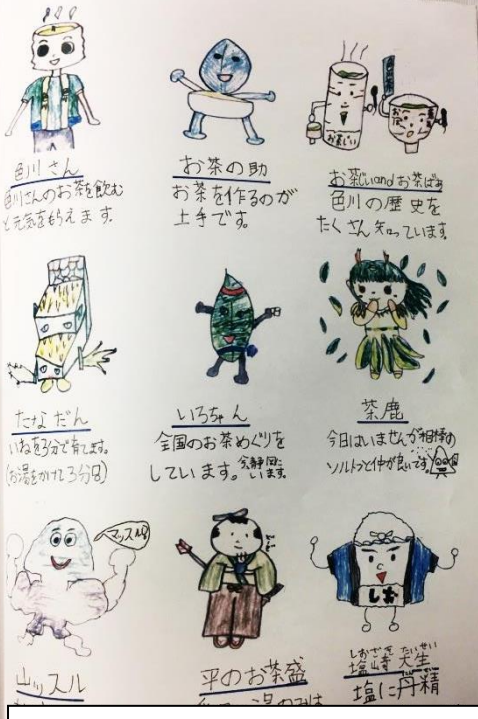 色川さん
色川さんのお茶を飲む
と元気をもらえます。
お茶の助
お茶を作るのが
上手です。
お茶じいandお茶ばあ
色川の歴史を
たくさん知っています。
お茶じい
たなだん
いねを3分で育てます。
(お湯をかけて3分)
いろちゃん
全国のお茶めぐりを
しています。今静岡に
います。
茶鹿
今日はいませんが相棒の
ソルトンと仲が良いです。
マッスル
山ッスル
平のお茶盛
しお
しおざき たいせい
塩崎 大生
塩に丹精